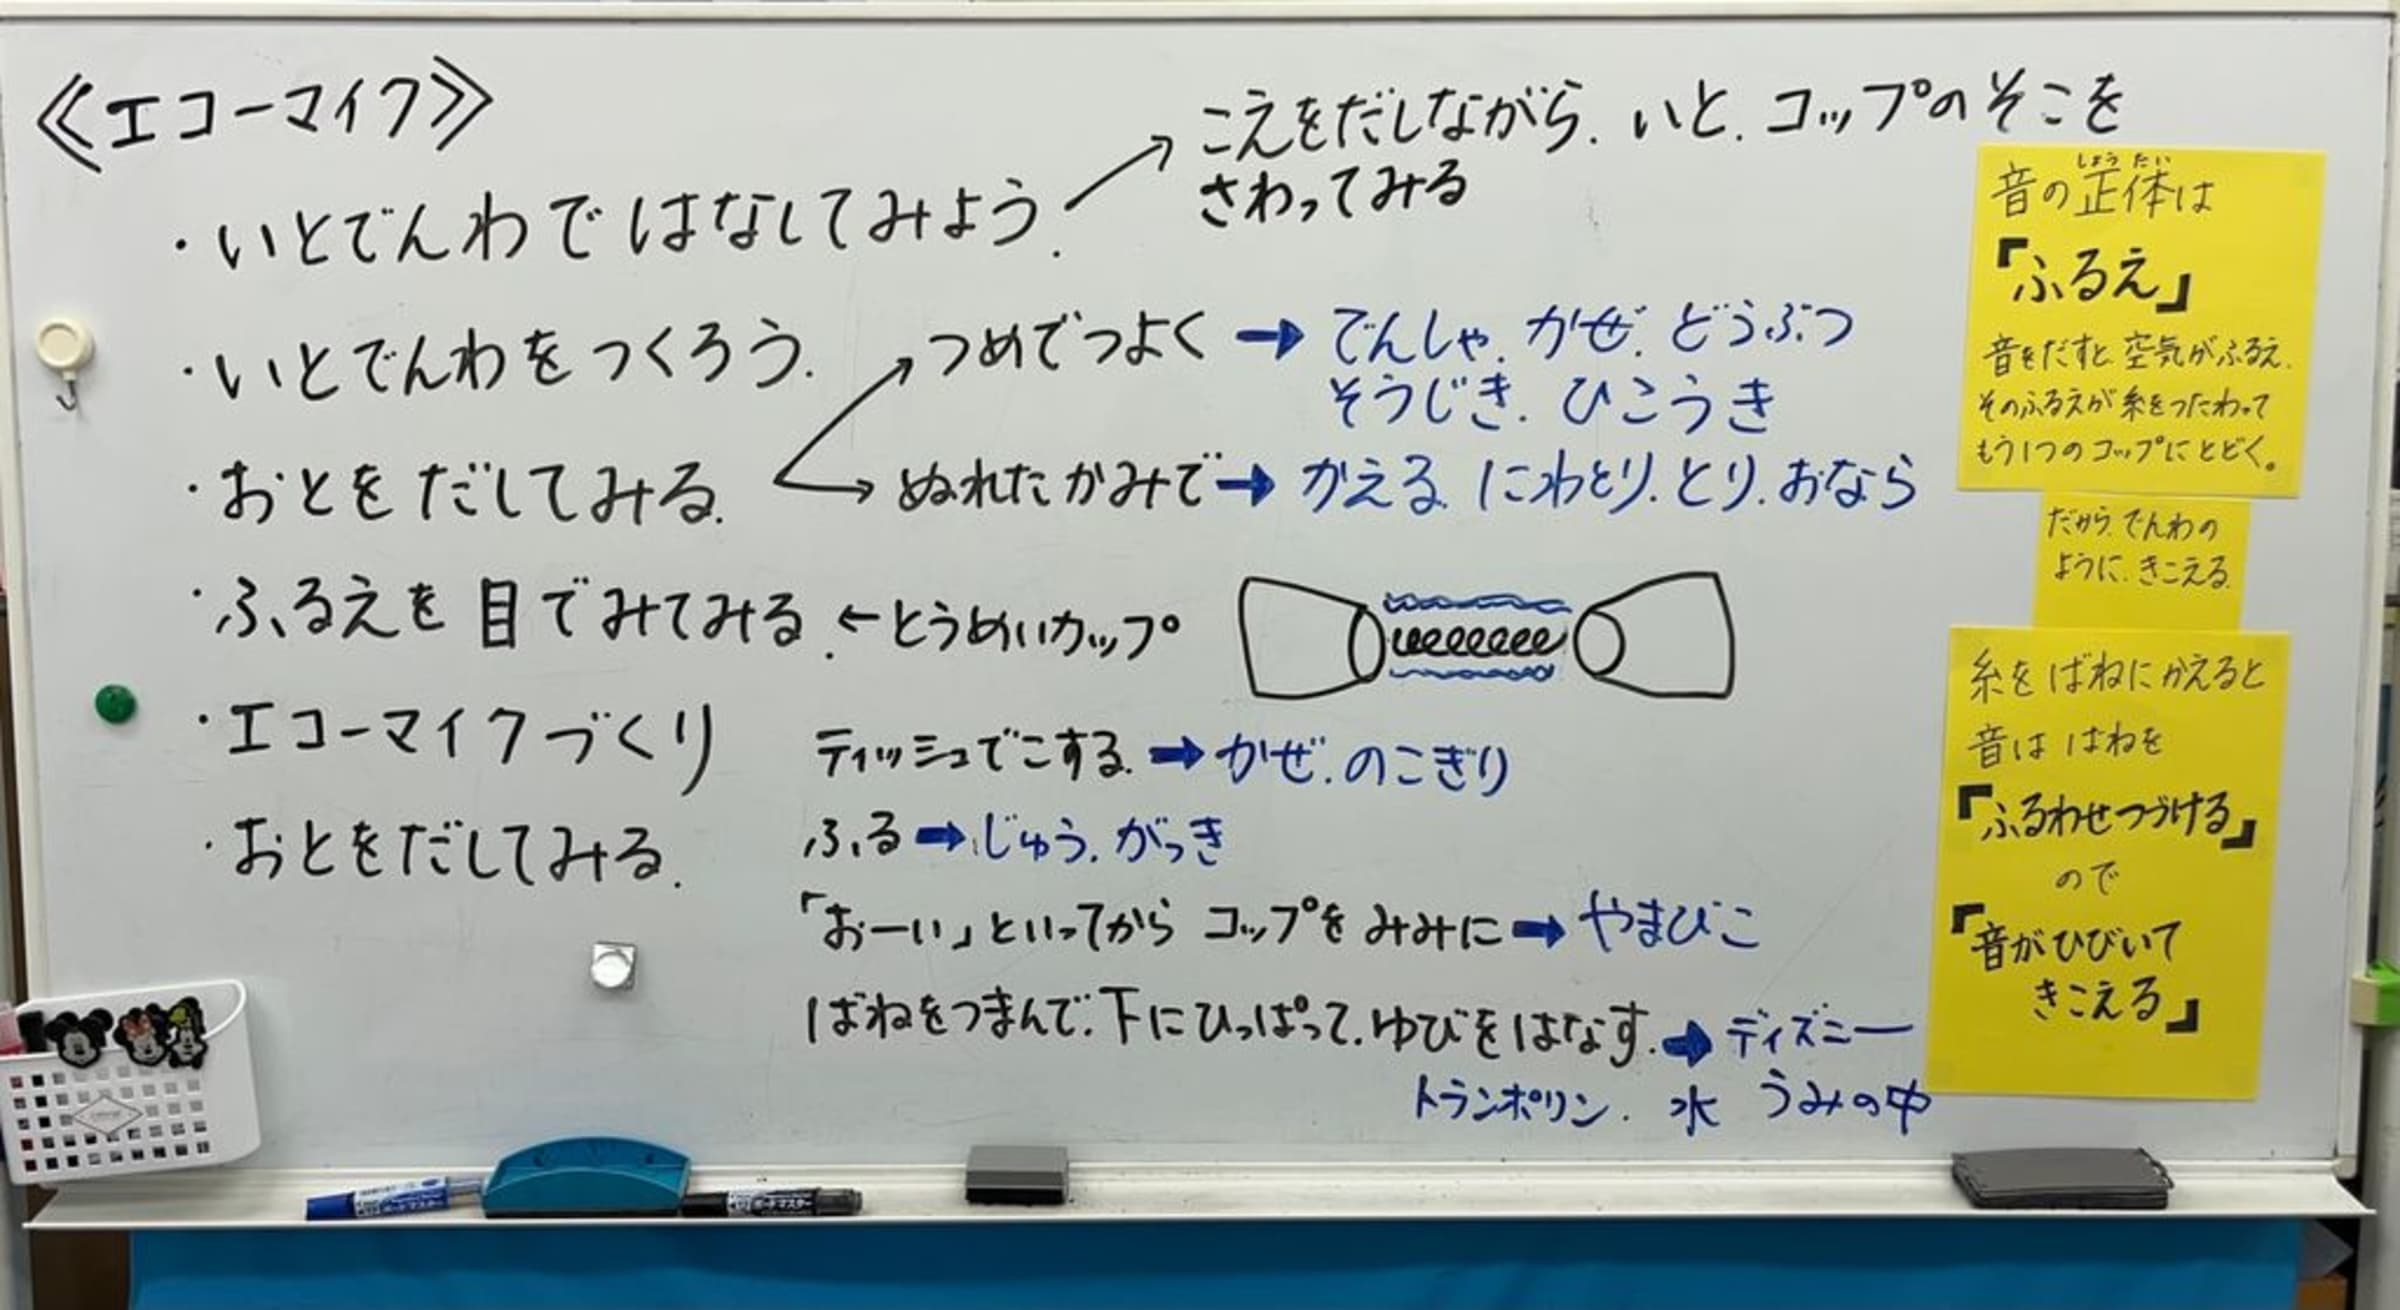 ≪エコーマイク≫
・いとでんわではなしてみよう.
↗こえをだしながら.いと.コップのそこを
さわってみる
・いとでんわをつくろう.
・おとをだしてみる.
↗つめでつよく➡でんしゃ.かぜ.どうぶつ
そうじき.ひこうき
→ぬれたかみで➡かえる.にわとり.とり.おなら
・ふるえを目でみてみる.←とうめいカップ
・エコーマイクづくり
・おとをだしてみる.
ティッシュでこする.➡かぜ.のこぎり
ふる➡じゅう.がっき
「おーい」といってからコップをみみに➡やまびこ
ばねをつまんで.下にひっぱって.ゆびをはなす.➡ディズニー
トランポリン. 水 うみの中
しょうたい
音の正体は
『ふるえ』
音をだすと空気がふるえ.
そのふるえが糸をつたわって
もう1つのコップにとどく。
だから.でんわの
ように.きこえる.
糸をばねにかえると
音はばねを
『ふるわせつづける』
ので
『音がひびいて
きこえる』
ボードマスター
ボードマスター